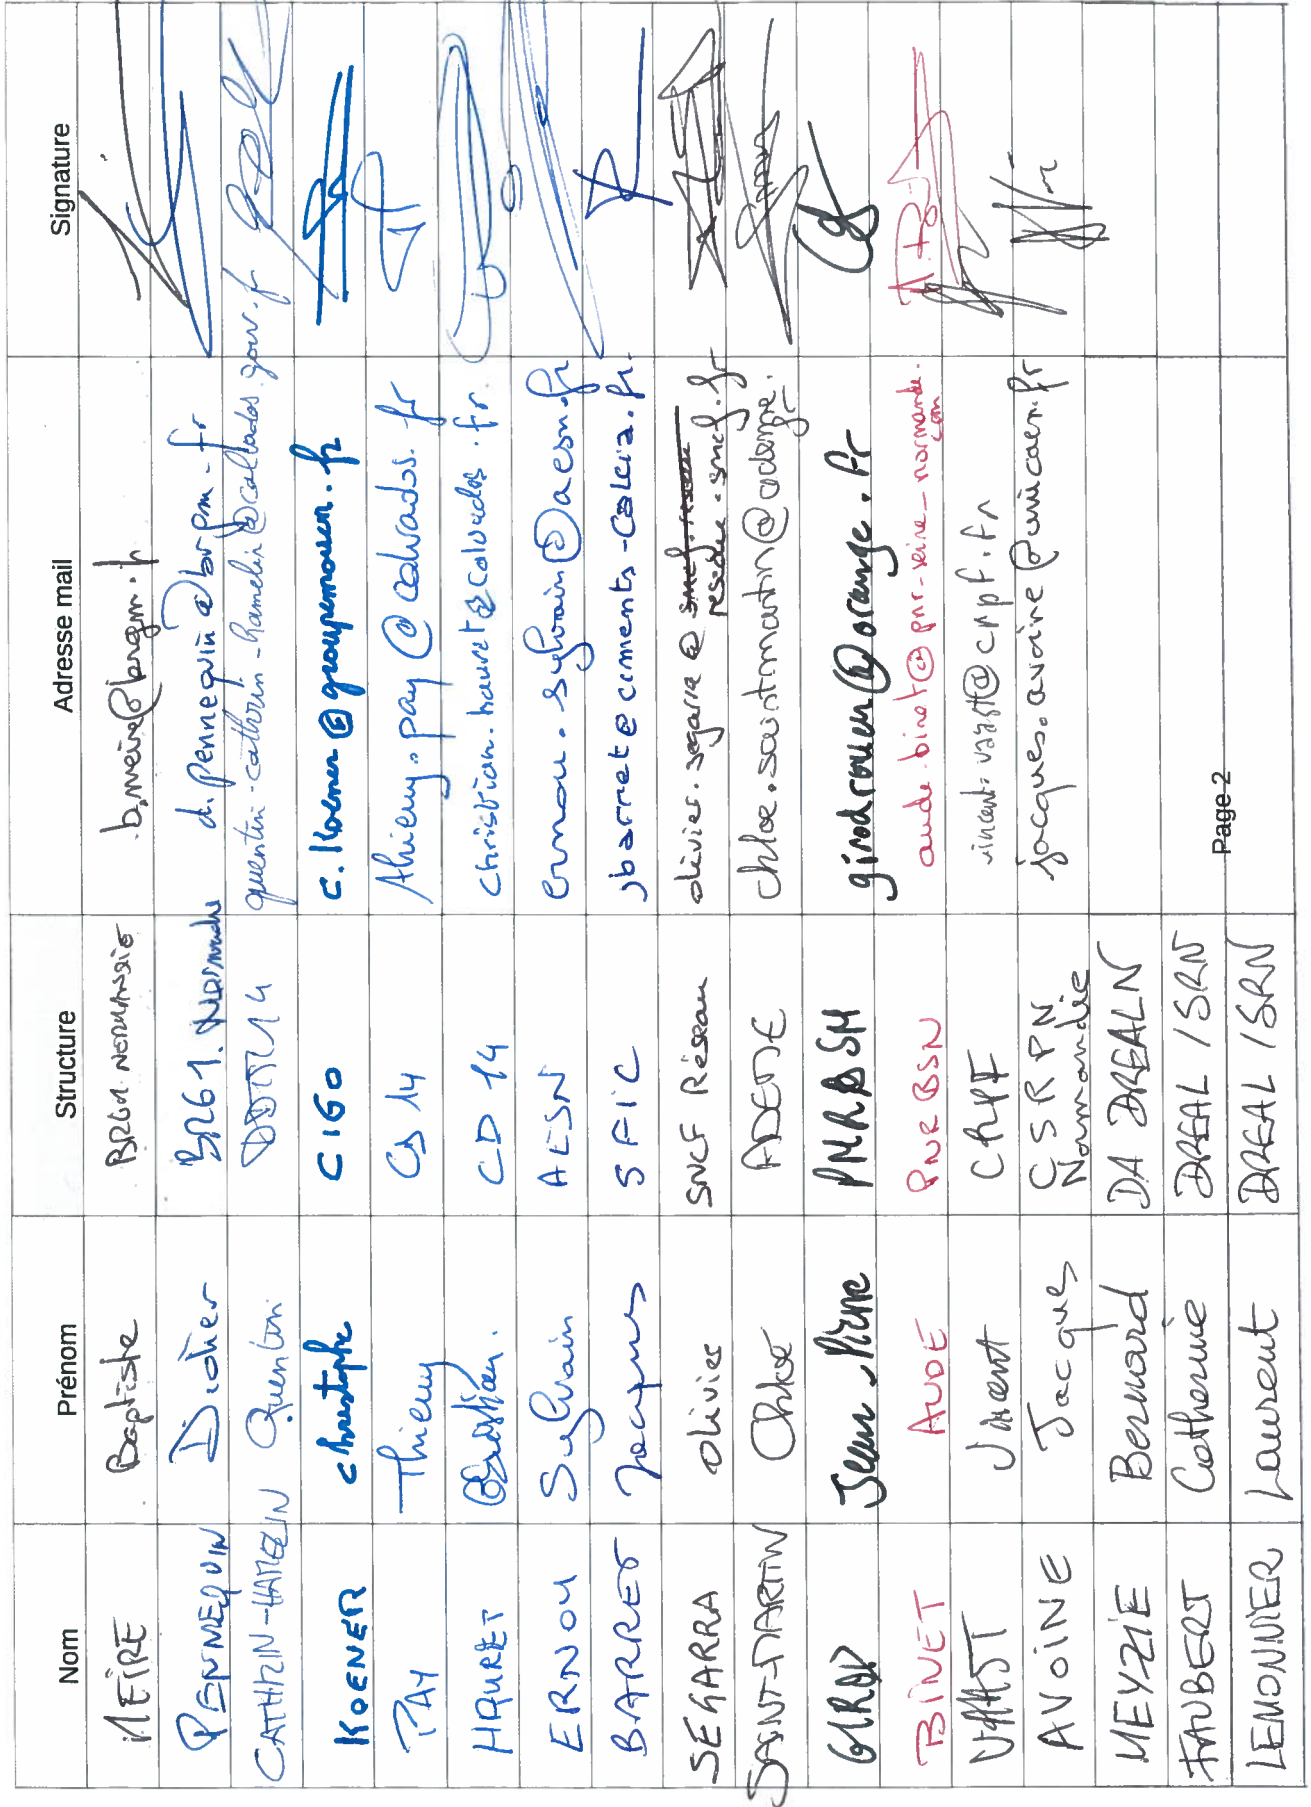 Nom Prénom Structure Adresse mail Signature
MEIRE Baptiste BRGM NORMANDIE b.meire@brgm.fr
PENNEQUIN Didier BRGM. Normandie d.pennequin@brgm.fr
CATHRIN-HAMELIN Quentin DDTM 14 quentin-cathrin-hamelin@calvados.gouv.fr
KOENER christophe CIGO c.koener@groupemouen.fr
PAY Thierry CD 14 thierry.pay@calvados.fr
HAURET Christian CD 14 christian.hauret@calvados.fr.
ERNOU Sylvain AESN ernou.sylvain@aesn.fr
BARRET Jacques SFIC jbarret@ciments-calcia.fr
SEGARRA Olivier SNCF Réseau olivier.segarra@reseau.sncf.fr
SAINT-MARTIN Chloé ADEME chloe.saintmartin@ademe.fr
GIROD Jean Pierre girodrouen@orange.fr
BINET AUDE PNR BSN aude.binet@pnr-seine-normande.com
VAAST Vincent CRPF vincent.vaast@crpf.fr
AVOINE Jacques CSRPN Normandie jacques.avoine@unicaen.fr
MEYZIE Bernard DA DREALN
FAUBERT Catherine DREAL/SRN
LEMONNIER Laurent DREAL/SRN
Page 2